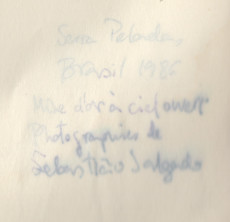 Serra Pelada,
Brasil 1986
Mine d'or à ciel ouvert
Photographies de
Sebastião Salgado